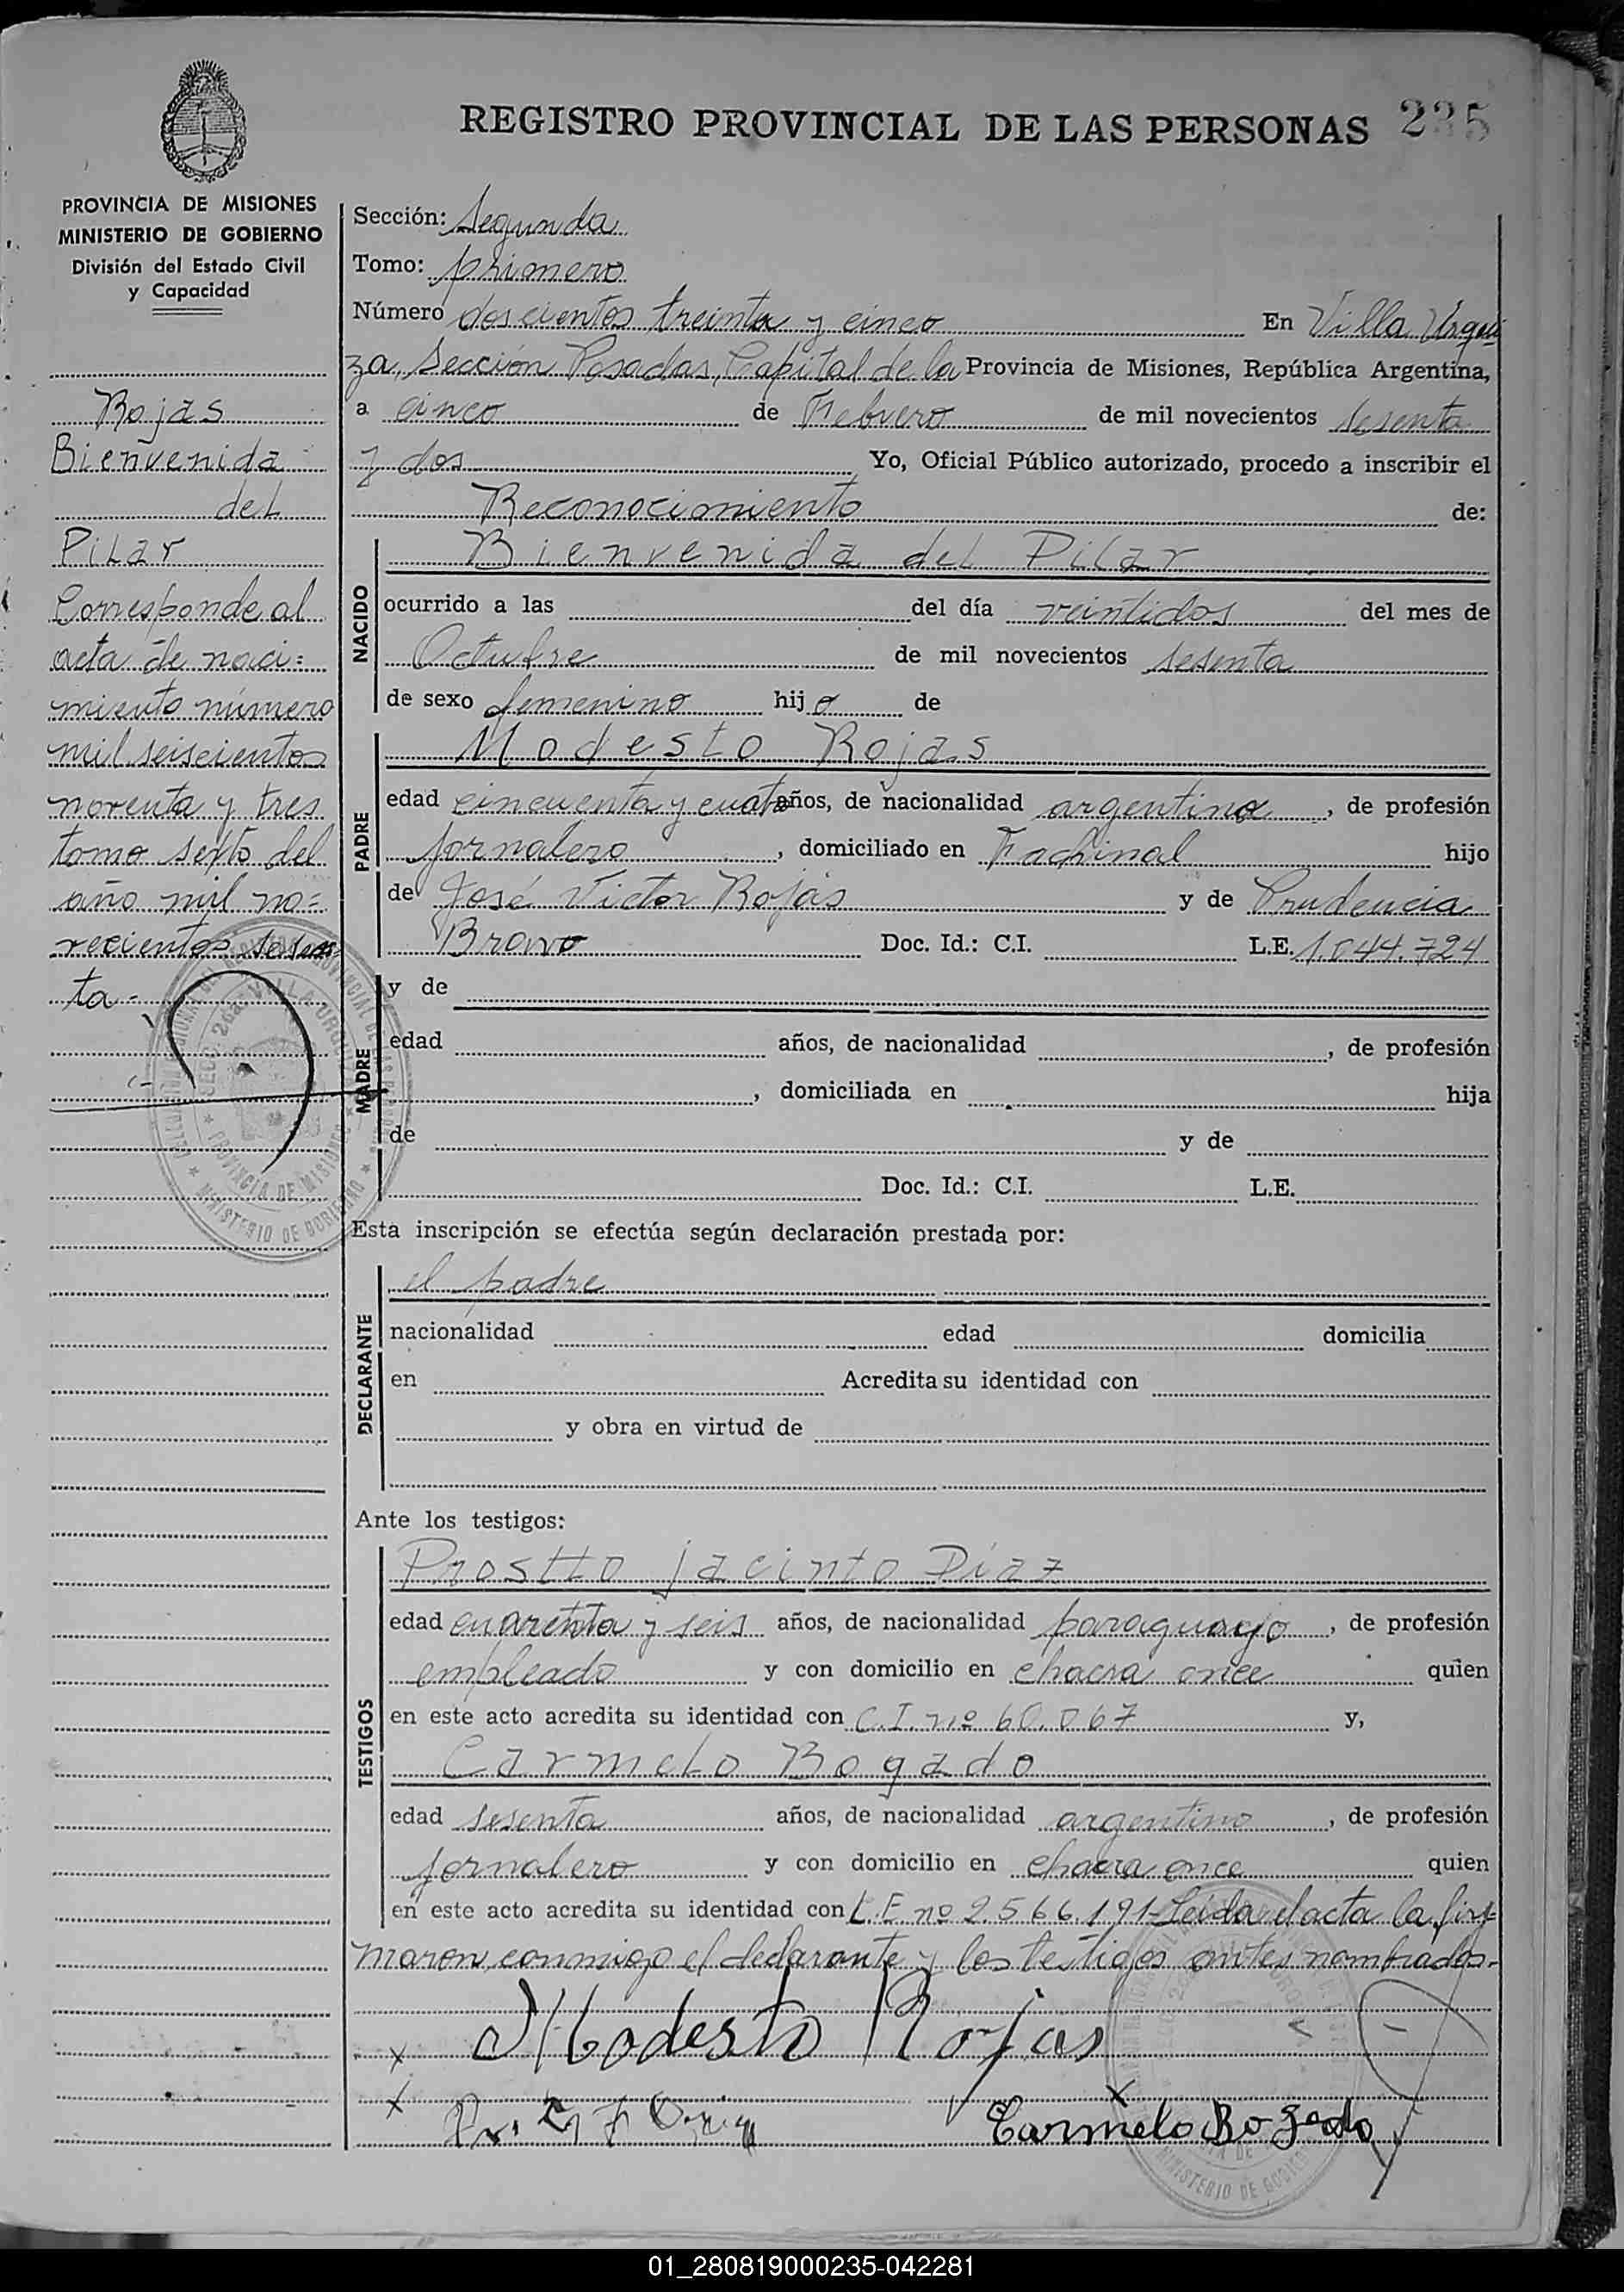 REGISTRO PROVINCIAL DE LAS PERSONAS 235
PROVINCIA DE MISIONES
MINISTERIO DE GOBIERNO
División del Estado Civil
y Capacidad
Rojas
Bienvenida
del
Pilar
Corresponde al
acta de naci=
miento número
mil seiscientos
noventa y tres
tomo sexto del
año mil no=
vecientos sesen
ta-
Sección: Segunda
Tomo: primero
Número doscientos treinta y cinco En Villa Urqui
za, Sección Posadas, Capital de la Provincia de Misiones, República Argentina,
a cinco de Febrero de mil novecientos sesenta
y dos Yo, Oficial Público autorizado, procedo a inscribir el
Reconocimiento de:
NACIDO
Bienvenida del Pilar
ocurrido a las del día veintidos del mes de
Octubre de mil novecientos sesenta
de sexo femenino hij a de
PADRE
Modesto Rojas
edad cincuenta y cuatro años, de nacionalidad argentina, de profesión
jornalero, domiciliado en Fachinal hijo
de José Victor Rojas y de Prudencia
Bravo Doc. Id.: C.I. L.E. 1.644.724
MADRE
y de
edad años, de nacionalidad , de profesión
, domiciliada en hija
de y de
Doc. Id.: C.I. L.E.
Esta inscripción se efectúa según declaración prestada por:
DECLARANTE
el padre
nacionalidad edad domicilia
en Acredita su identidad con
y obra en virtud de
Ante los testigos:
TESTIGOS
Jacinto Díaz
edad cuarenta y seis años, de nacionalidad paraguayo, de profesión
empleado y con domicilio en chacra once quien
en este acto acredita su identidad con C.I. nº 60.067 y,
Carmelo Bogado
edad sesenta años, de nacionalidad argentino, de profesión
jornalero y con domicilio en chacra once quien
en este acto acredita su identidad con L.E. nº 2.566.191-Leida el acta la fir=
maron conmigo el declarante y los testigos antes nombrados.
x Modesto Rojas
x x
Carmelo Bogado
01_280819000235-042281